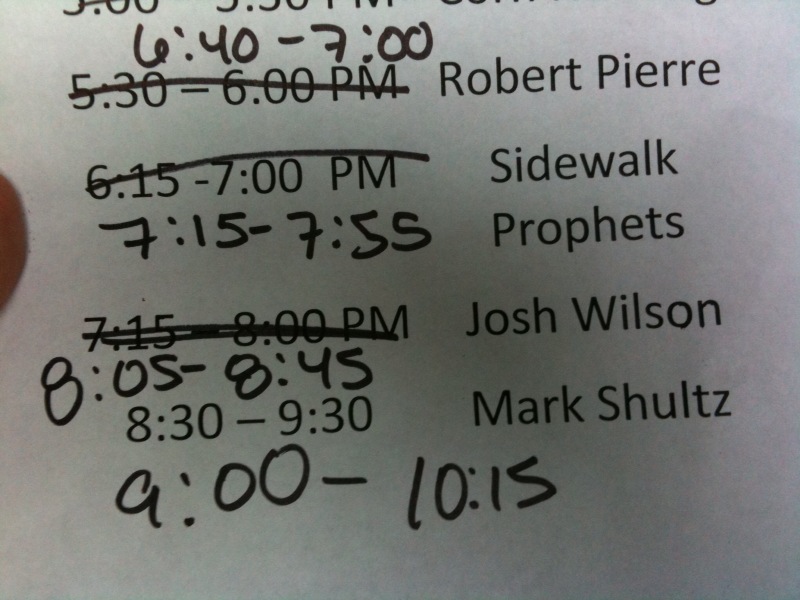 6:40-7:00
5:30 – 6:00 PM Robert Pierre
6:15 -7:00 PM Sidewalk
7:15-7:55 Prophets
7:15 – 8:00 PM Josh Wilson
8:05-8:45
8:30 – 9:30 Mark Shultz
9:00- 10:15